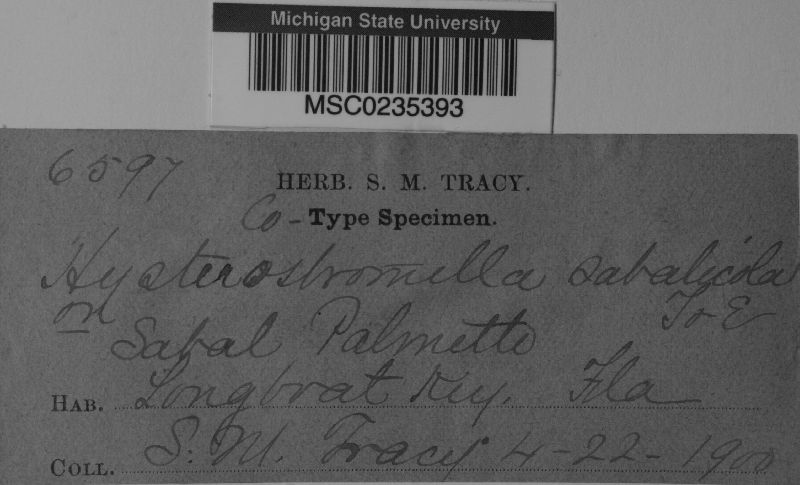 Michigan State University
MSC0235393
6597
HERB. S. M. TRACY.
Co-Type Specimen.
Hysterostromella sabalicola
on T & E
Sabal Palmetto
HAB. Longboat Key, Fla
COLL. S. M. Tracy 4-22-1900